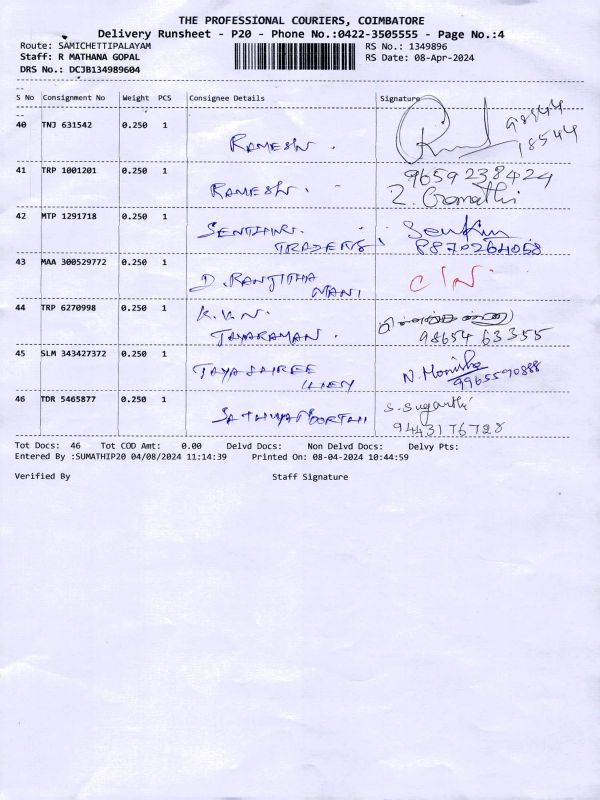 THE PROFESSIONAL COURIERS, COIMBATORE
Delivery Runsheet - P20 - Phone No.:0422-3505555 - Page No.:4
Route: SAMICHETTIPALAYAM RS No.: 1349896
Staff: R MATHANA GOPAL RS Date: 08-Apr-2024
DRS No.: DCJB134989604
S No Consignment No Weight PCS Consignee Details Signature
40 TNJ 631542 0.250 1
RAMESH. 98544
18544
41 TRP 1001201 0.250 1 9659238424
RAMESH. Z. Gomathi
42 MTP 1291718 0.250 1
SENTHIL
TRADERS 8870264058
43 MAA 300529772 0.250 1
D. RANJITHA
MANI
44 TRP 6270998 0.250 1
K.V.N.
JAYARAMAN. 98654 63355
45 SLM 343427372 0.250 1
JAYASHREE N. Monisha
9965590888
46 TDR 5465877 0.250 1 S. Suganthi
SATHYAMOORTHI 9443176728
Tot Docs: 46 Tot COD Amt: 0.00 Delvd Docs: Non Delvd Docs: Delvy Pts:
Entered By :SUMATHIP20 04/08/2024 11:14:39 Printed On: 08-04-2024 10:44:59
Verified By Staff Signature